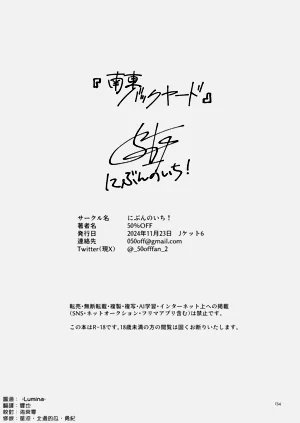 『南東バックヤード』
にぶんのいち！
サークル名 にぶんのいち！
著者名 50%OFF
発行日 2024年11月23日 Jケット6
連絡先 050off@gmail.com
Twitter(現X) @_50offfan_2
転売・無断転載・複製・複写・AI学習・インターネット上への掲載
(SNS・ネットオークション・フリマアプリ含む)は禁止です。
この本はR-18です。18歳未満の方の閲覧は固くお断りいたします。
圖源： -Lumina-
翻譯：響也
194